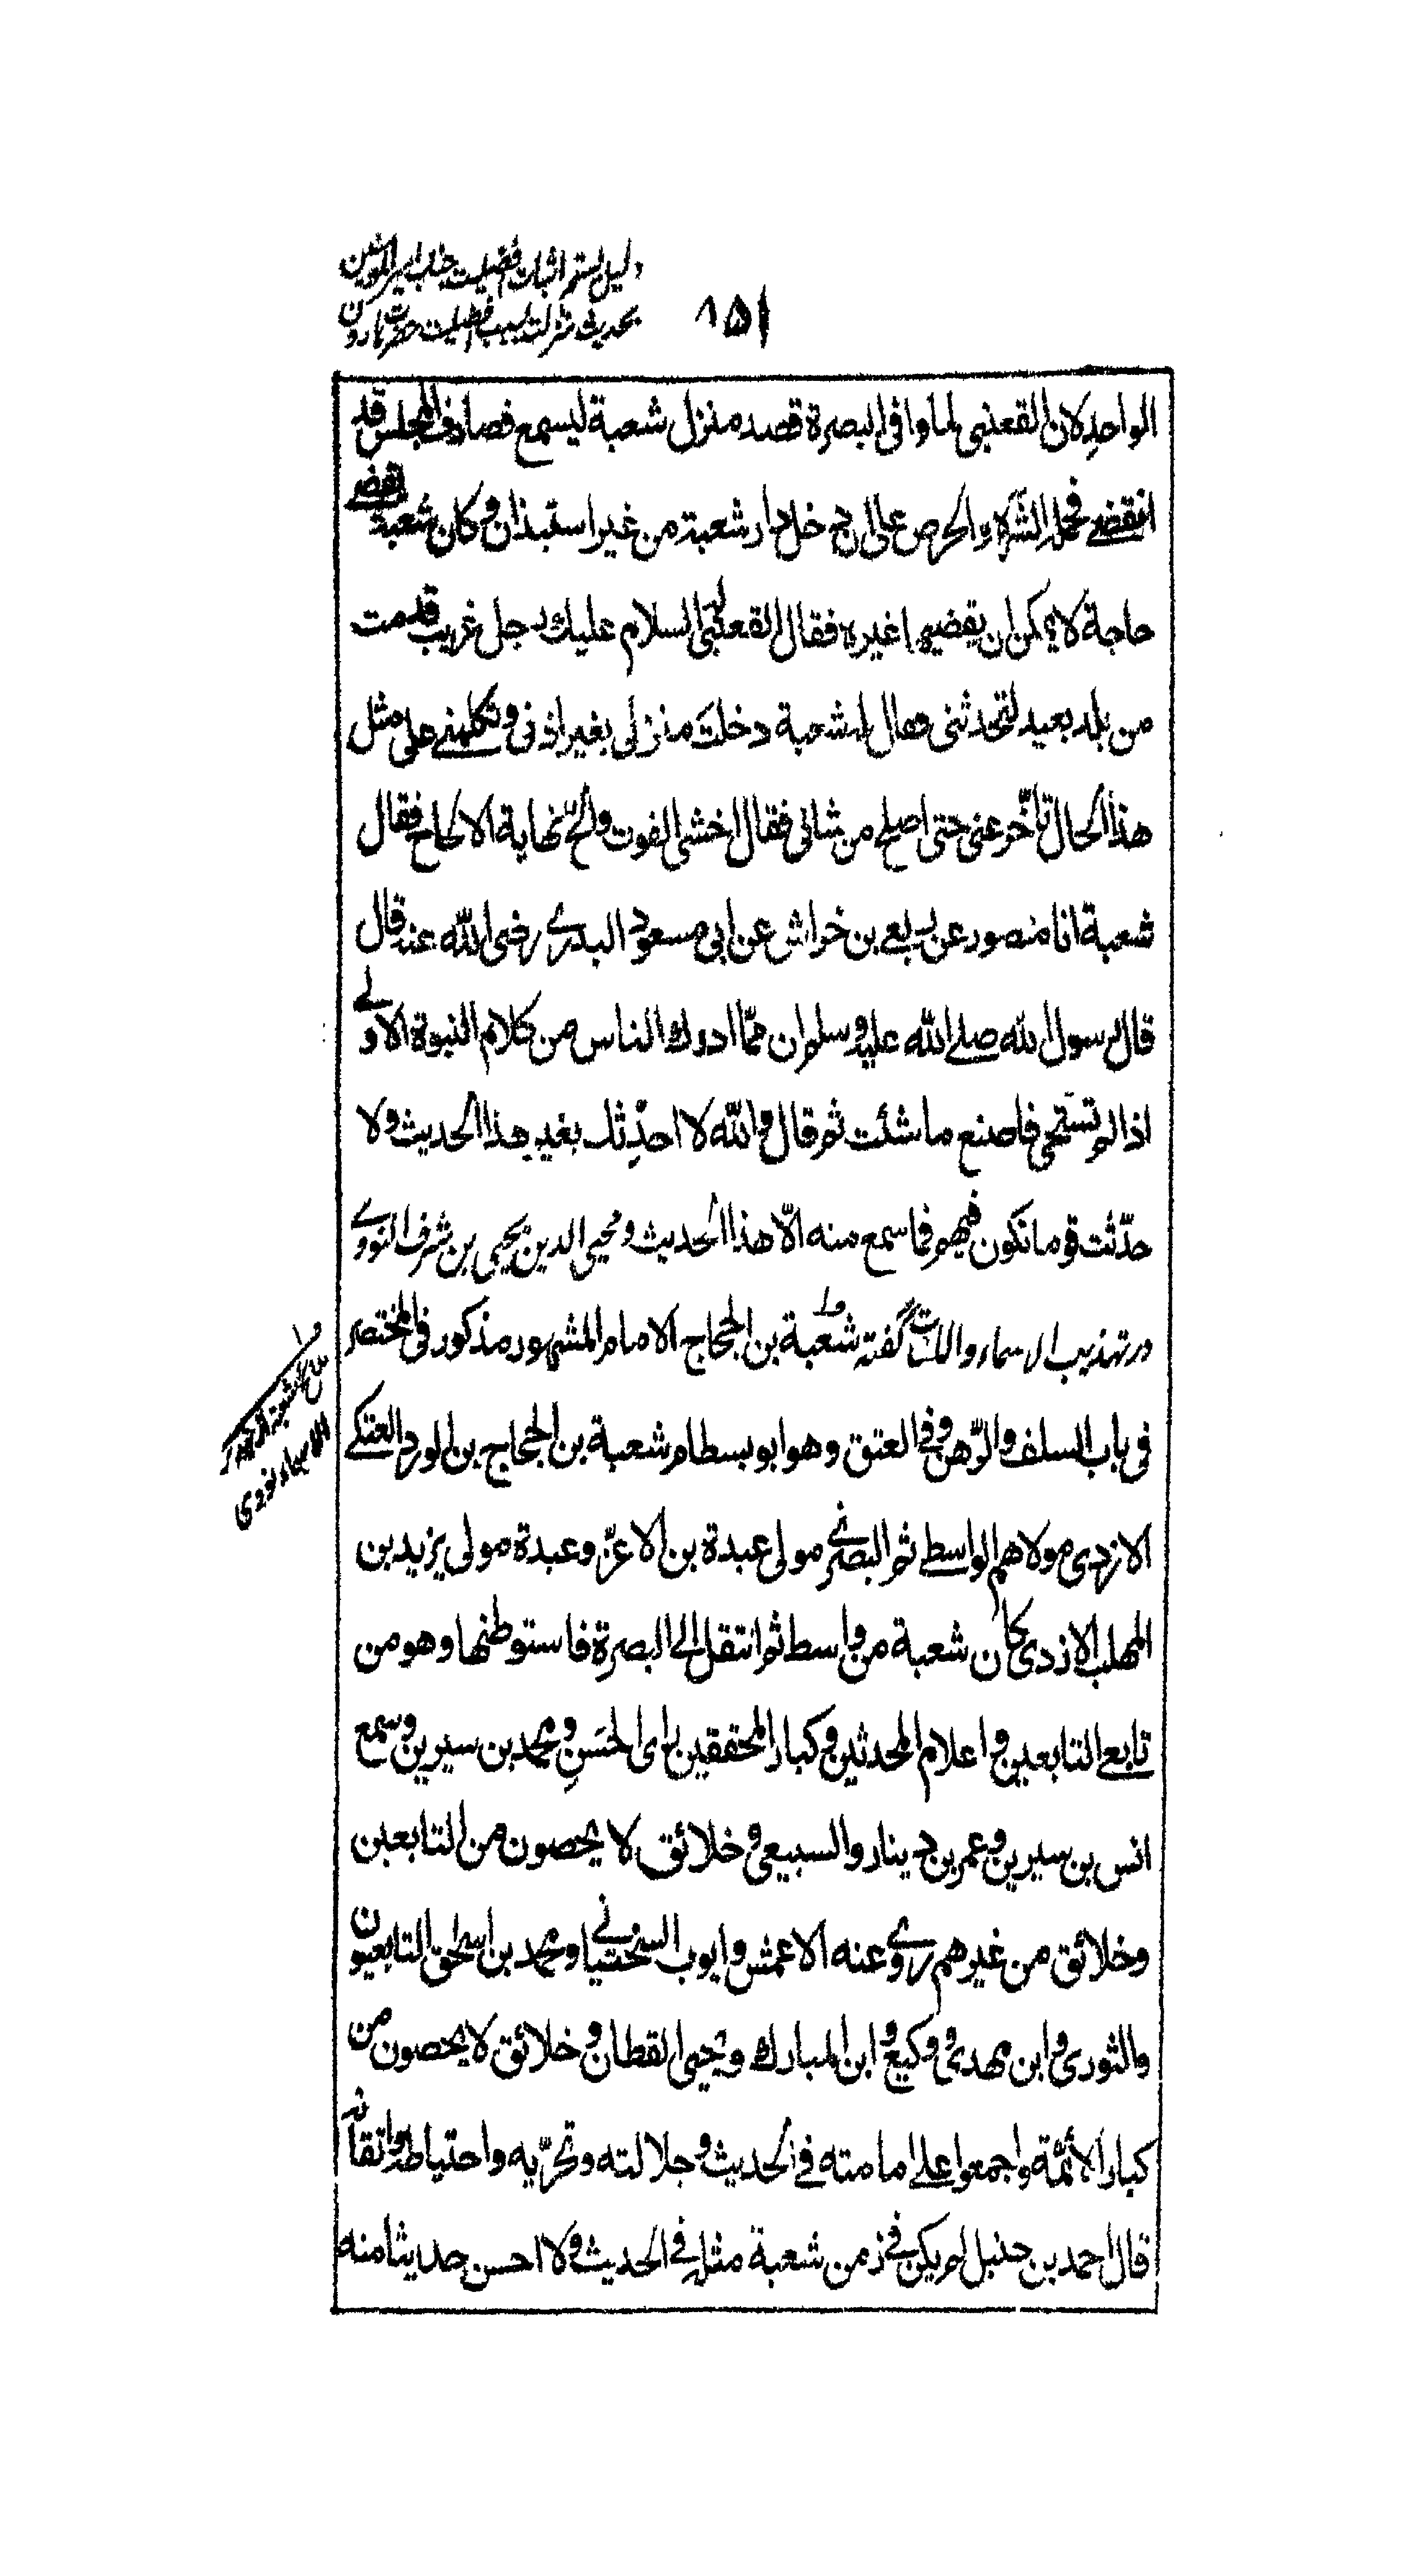 ۸۵۱
دلیل بستم اثبات افضلیت جناب امیر المومنین
بحدیث منزلت بسبب افضلیت حضرت هارون
الواحد لان القعنبی لما وافی البصرة قصد منزل شعبة لیسمع فصادف المجلس قد
انقضے فحمله الشره والحرص علی ان دخل دار شعبة من غیر استیذان وکان شعبة یقضے
حاجة لا یمکن ان یقضیها غیره فقال القعنبی السلام علیك رجل غریب قدمت
من بلد بعید لتحدثنی فقال له شعبة دخلت منزلی بغیر اذنی وتکلمنے علی مثل
هذا الحال تأخّر عنی حتی اصلح من شانی فقال اخشی الفوت والحّ نهایة الالحاح فقال
شعبة انا منصور عن ربعی بن خراش عن ابی مسعود البدرے رضی الله عنه قال
قال رسول الله صلے الله علیه وسلم ان ممّا ادرك الناس من کلام النبوة الاولے
اذا لم تستحی فاصنع ما شئت ثم قال والله لا احدّثك بغیر هذا الحدیث ولا
حدّثت قوما تکون فیهم فما سمع منه الّا هذا الحدیث ومحیی الدین یحیی بن شرف النووے
در تهذیب الاسماء واللغات گفته شعبة بن الحجاج الامام المشهور مذکور فی المختصر
فی باب السلف والرّهن وفے العتق وهو ابو بسطام شعبة بن الحجاج بن الورد العتکے
الازدی مولاهم الواسطے ثم البصرے مولی عبدة بن الاغرّ وعبدة مولی یزید بن
المهلب الازدی کان شعبة من واسط ثم انتقل الی البصرة فاستوطنها وهو من
تابعے التابعین واعلام المحدثین وکبار المحققین رای الحسن ومحمد بن سیرین وسمع
انس بن سیرین وعمر بن دینار والسبیعی وخلائق لا یحصون من التابعین
وخلائق من غیرهم روے عنه الاعمش وایوب السختیانے ومحمد بن اسحق التابعیون
والثوری وابن مهدی ووکیع وابن المبارك ویحیی القطان وخلائق لا یحصون من
کبار الأئمّة واجمعوا علے امامته فے الحدیث وجلالته وتحرّیه واحتیاطه واتقانه
قال احمد بن حنبل لم یکن فے زمن شعبة مثله فے الحدیث ولا احسن حدیثا منه
مدح شعبة از تهذیب
الاسماء نووی